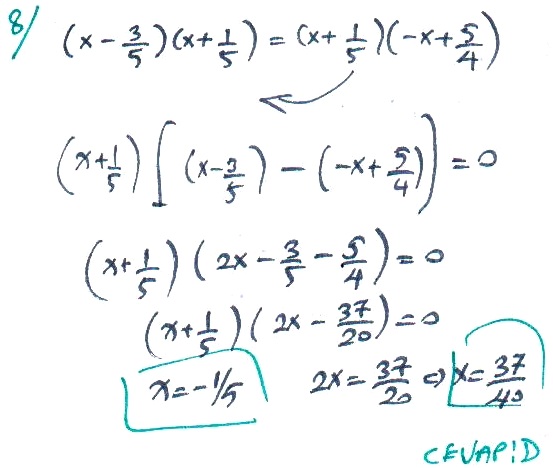 8/ (x - 3/5)(x + 1/5) = (x + 1/5)(-x + 5/4)
(x + 1/5) [(x - 3/5) - (-x + 5/4)] = 0
(x + 1/5) (2x - 3/5 - 5/4) = 0
(x + 1/5) (2x - 37/20) = 0
x = -1/5 2x = 37/20 ⇒ x = 37/40
CEVAP: D